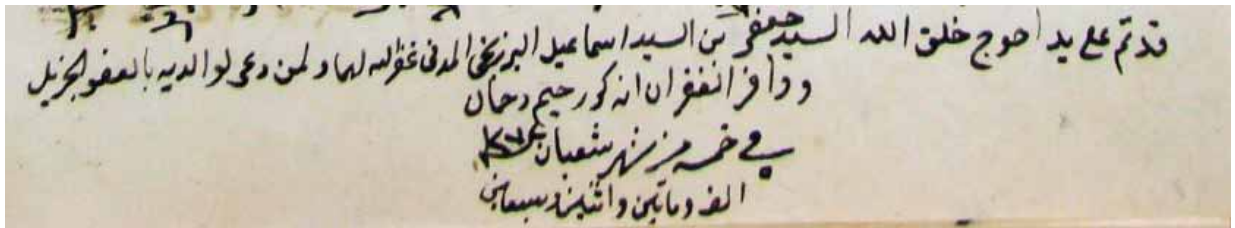 قد تم على يد احوج خلق الله السيد جعفر بن السيد اسماعيل البرزنجي المدني غفر الله لهما ولمن دعى لوالديه بالعفو الجزيل
ووافر الغفران انه كور رحيم رحمان
في خمسه من شهر شعبان
الف ومايتين واثنين وسبعين